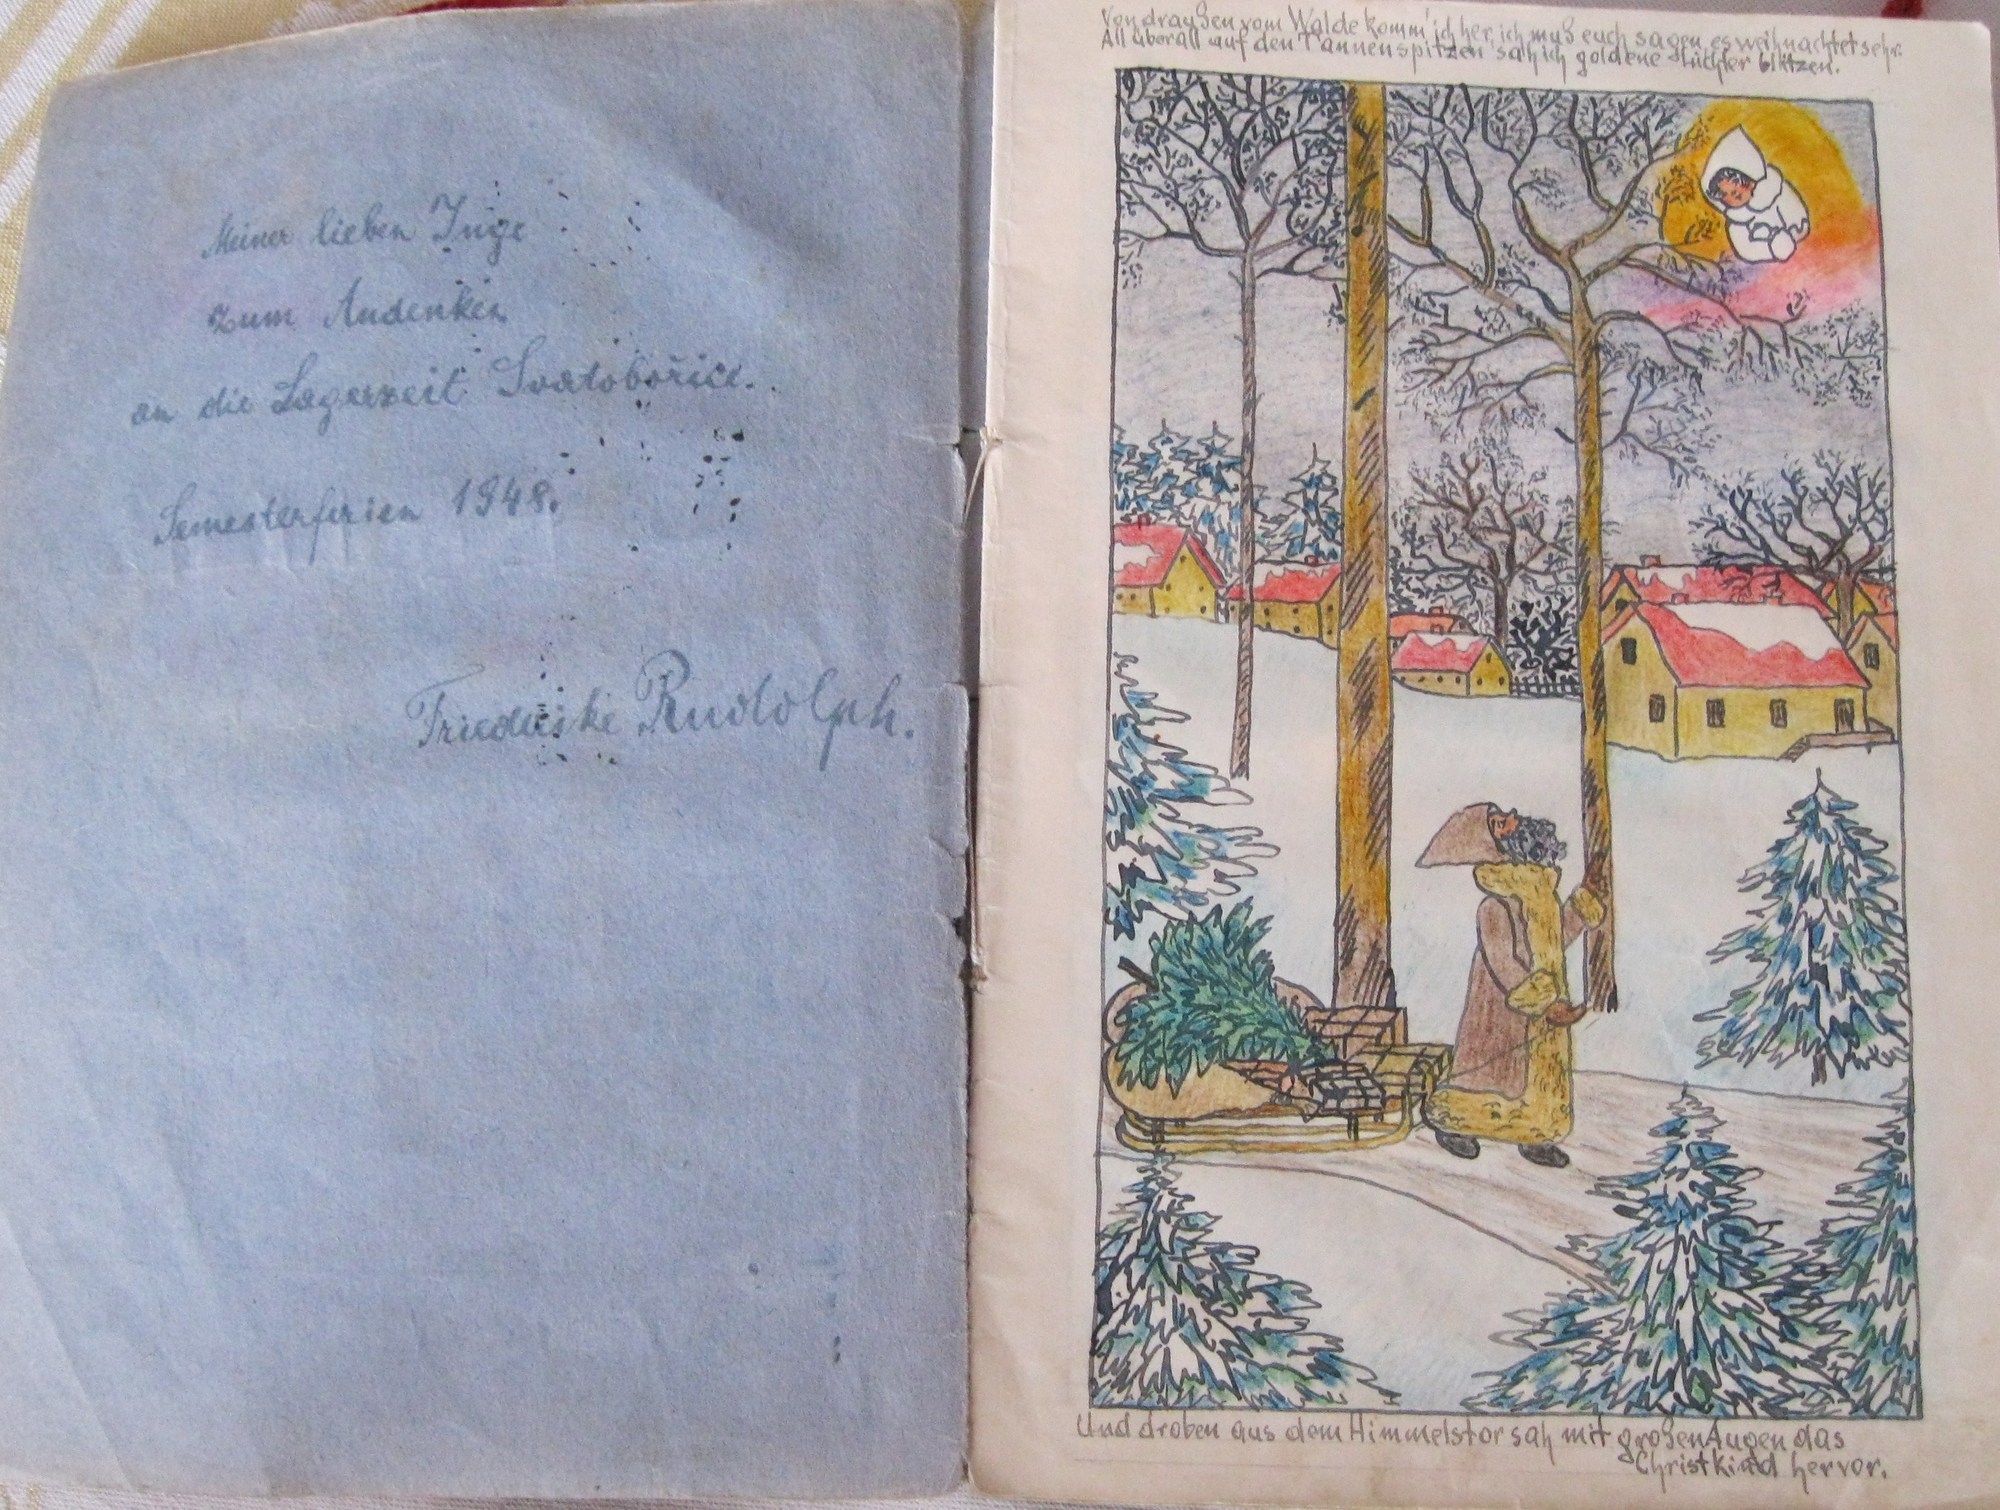 Meiner lieben Inge
zum Andenken
an die Lagerzeit Svatobořice.
Semesterferien 1948.
Friederike Rudolph.
Von draußen vom Walde komm' ich her, ich muß euch sagen, es weihnachtet sehr.
All überall auf den Tannenspitzen sah ich goldene Lichter blitzen.
Und droben aus dem Himmelstor sah mit großen Augen das
Christkind hervor.